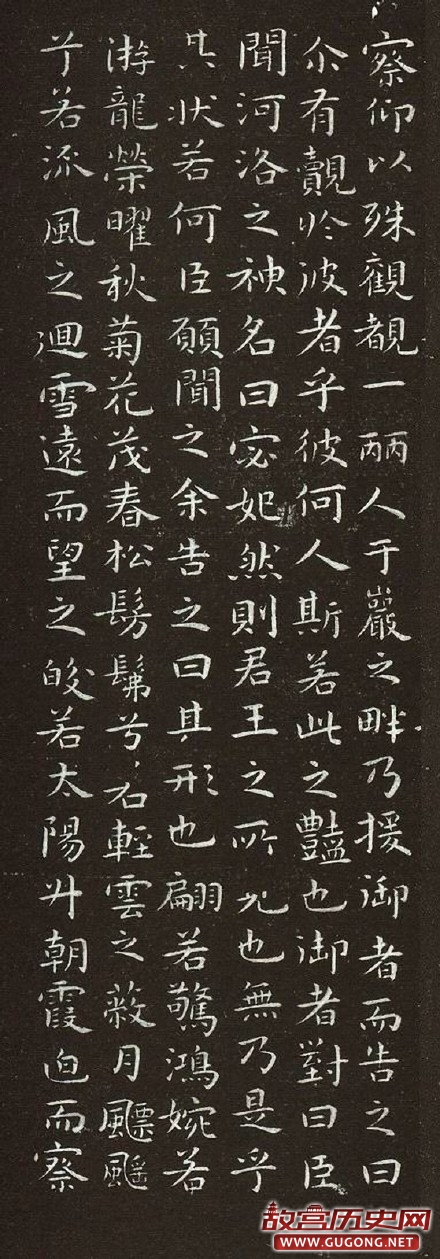 察仰以殊觀覩一麗人于巖之畔乃援御者而告之曰
尒有覿於彼者乎彼何人斯若此之豔也御者對曰臣
聞河洛之神名曰宓妃然則君王之所見也無乃是乎
其狀若何臣願聞之余告之曰其形也翩若驚鴻婉若
游龍榮曜秋菊花茂春松髣髴兮若輕雲之蔽月飄颻
兮若流風之迴雪遠而望之皎若太陽升朝霞迫而察
故宫历史网
www.GUGONG.NET